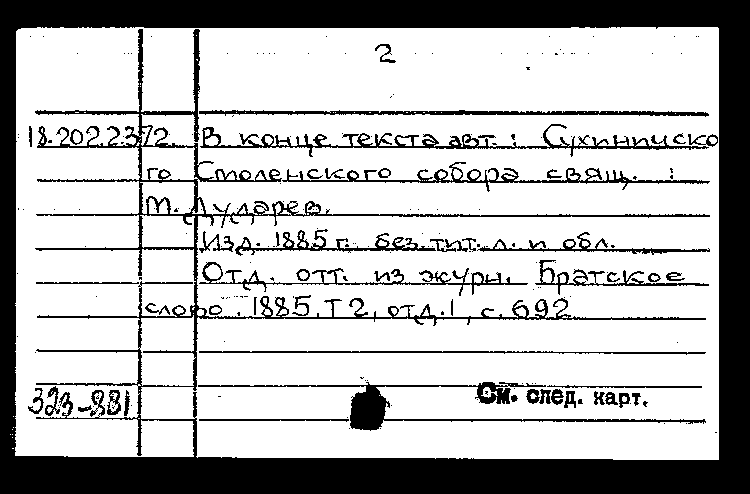 2
18.202.2.372. В конце текста авт.: Сухиничско
го Смоленского собора свящ. :
М. Дударев.
Изд. 1885 г. без тит. л. и обл.
Отд. отт. из журн. Братское
слово. 1885, Т 2, отд. 1, с. 692
323-881
См. след. карт.